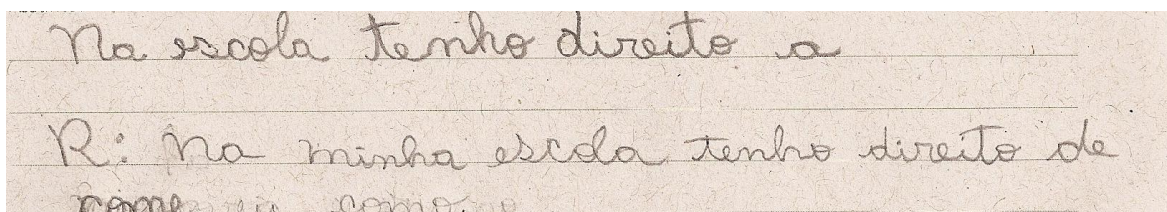 Na escola tenho direito a
R: Na minha escola tenho direito de